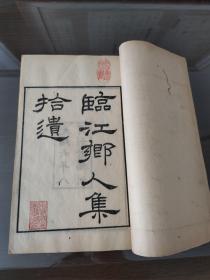 臨江鄉人集
拾遺